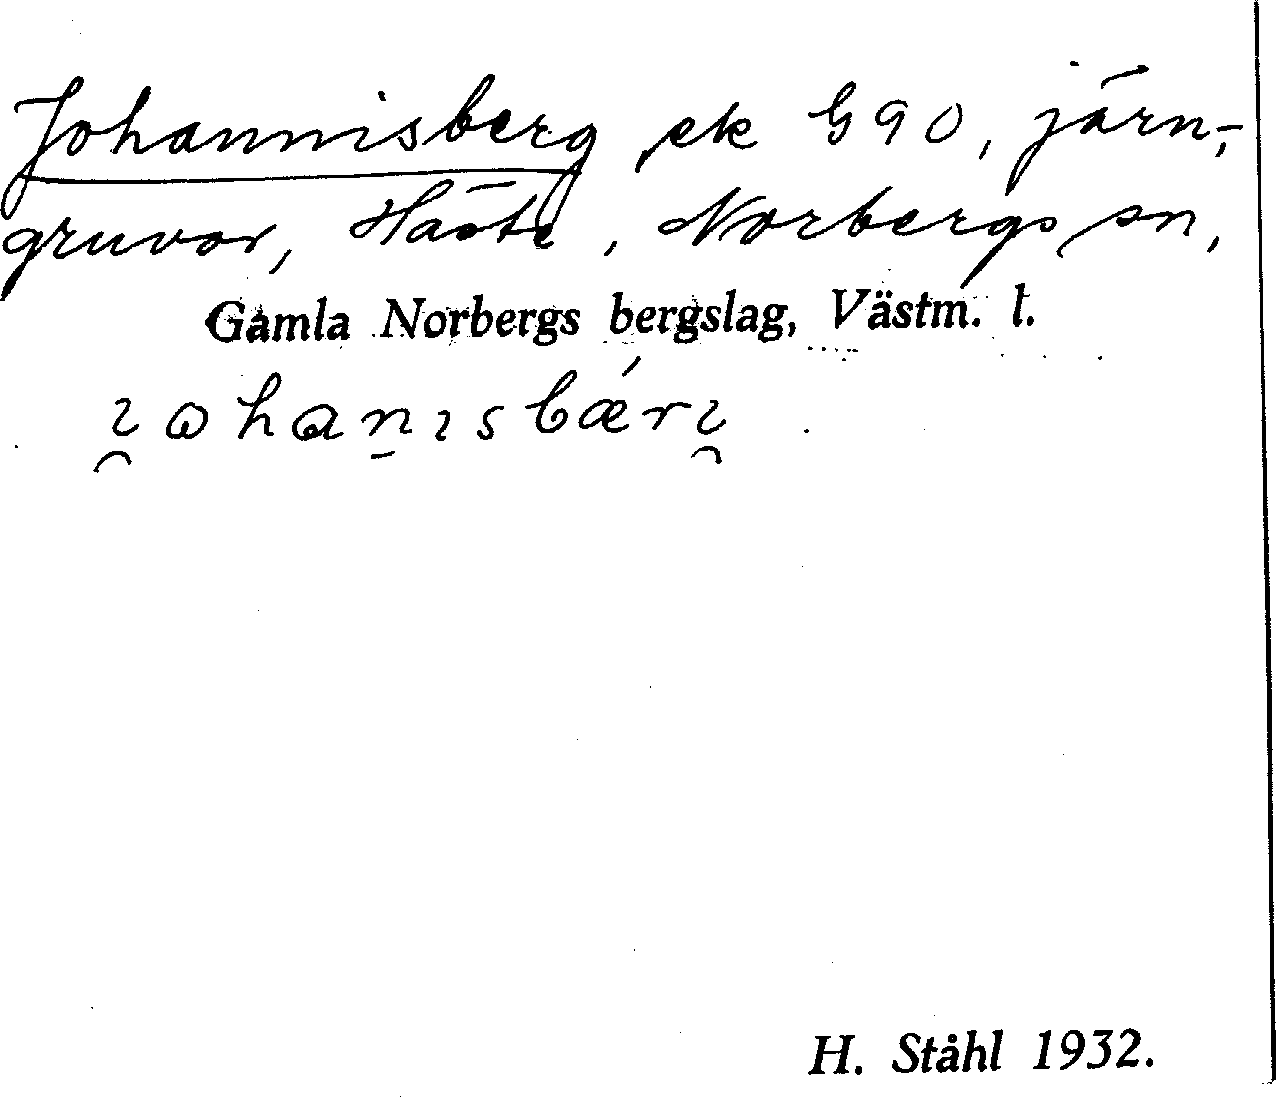 Johannisberg, ek G90, järn-,
gruvor, Häste, Norbergs sn,
Gamla Norbergs bergslag, Västm. l.
i̯ohan̠ısbǽri̯
H. Ståhl 1932.